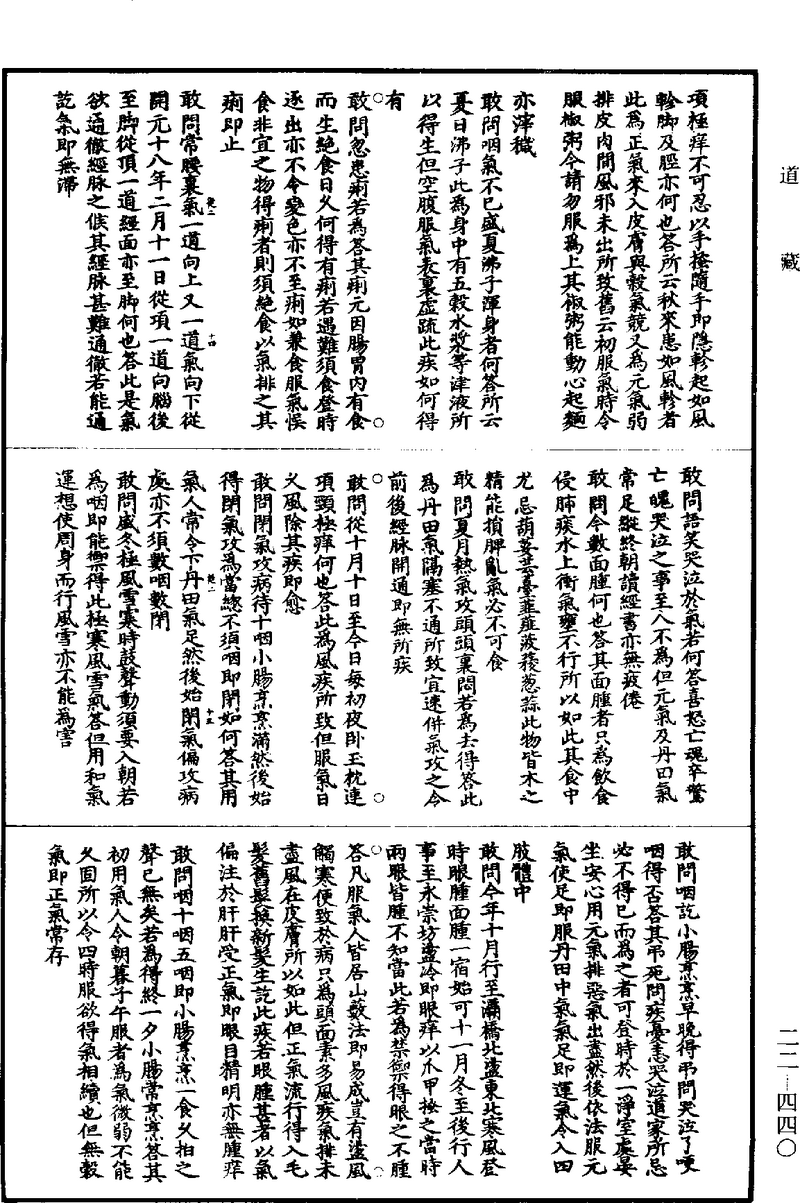 道藏
項極痒不可忍以手搔隨手即隱軫起如風
軫脚及脛亦何也答所云秋來患如風軫者
此為正氣來入皮膚與穀氣競又為元氣弱
排皮肉間風邪未出所致舊云初服氣時令
服椒粥今請勿服為上其椒粥能動心起麵
亦滓穢
敢問咽氣不已盛夏沸子渾身者何答所云
夏日沸子此為身中有五穀水漿等津液所
以得生但空腹服氣表裏虛疏此疾如何得
有
敢問忽患痢若為答其痢元因腸胃內有食
而生絕食日久何得有痢若遇難須食登時
逐出亦不令變色亦不至痢如兼食服氣悞
食非宜之物得痢者則須絕食以氣排之其
痢即止
敢問常腰裏氣一道向上又一道氣向下從
開元十八年二月十一日從項一道向腦後
至脚從頂一道經面亦至脚何也答此是氣
欲通徹經脉之候其經脉甚難通徹若能通
訖氣即無滯
敢問語笑哭泣於氣若何答喜怒亡魂卒驚
亡魄哭泣之事至人不為但元氣及丹田氣
常足縱終朝讀經書亦無疲倦
敢問今數面腫何也答其面腫者只為飲食
侵肺痰水上衝氣壅不行所以如此其食中
尤忌葫荽芸薹韮薤菠稜葱蒜此物皆木之
精能損脾亂氣必不可食
敢問夏月熱氣攻頭頭裏悶若為去得答此
為丹田氣隔塞不通所致宜速併氣攻之令
前後經脉開通即無所疾
敢問從十月十日至今日每初夜卧玉枕連
項頸極痒何也答此為風疾所致但服氣日
久風除其疾即愈
敢問閉氣攻病待十咽小腸烹烹滿然後始
得閉氣攻為當緫不須咽即閉如何答其用
氣人常令下丹田氣足然後始閉氣偏攻病
處亦不須數咽數閉
敢問盛冬極風雪寒時鼓聲動須要入朝若
為咽即能禦得此極寒風雪氣答但用和氣
運想使周身而行風雪亦不能為害
敢問咽訖小腸烹烹早晚得弔問哭泣了哽
咽得否答其弔死問疾憂恚哭泣道家所忌
必不得已而為之者可登時於一淨室處晏
坐安心用元氣排惡氣出盡然後依法服元
氣使足即服丹田中氣氣足即運氣令入四
肢體中
敢問今年十月行至灞橋北滻東北寒風登
時眼腫面腫一宿始可十一月冬至後行人
事至永崇坊盪冷即眼痒以爪甲掐之當時
兩眼皆腫不知當此若為禁禦得眼之不腫
答凡服氣人皆居山藪法即易成豈有盪風
觸寒便致於病只為頭面素多風疾氣排未
盡風在皮膚所以如此但正氣流行得入毛
髮舊髮換新髮生訖此疾若眼腫甚者以氣
偏注於肝肝受正氣即眼目精明亦無腫痒
敢問咽十咽五咽即小腸烹烹一食久拍之
聲已無矣若為得終一夕小腸常烹烹答其
初用氣人令朝暮子午服者為氣微弱不能
久固所以令四時服欲得氣相續也但無穀
氣即正氣常存
二二—四四〇